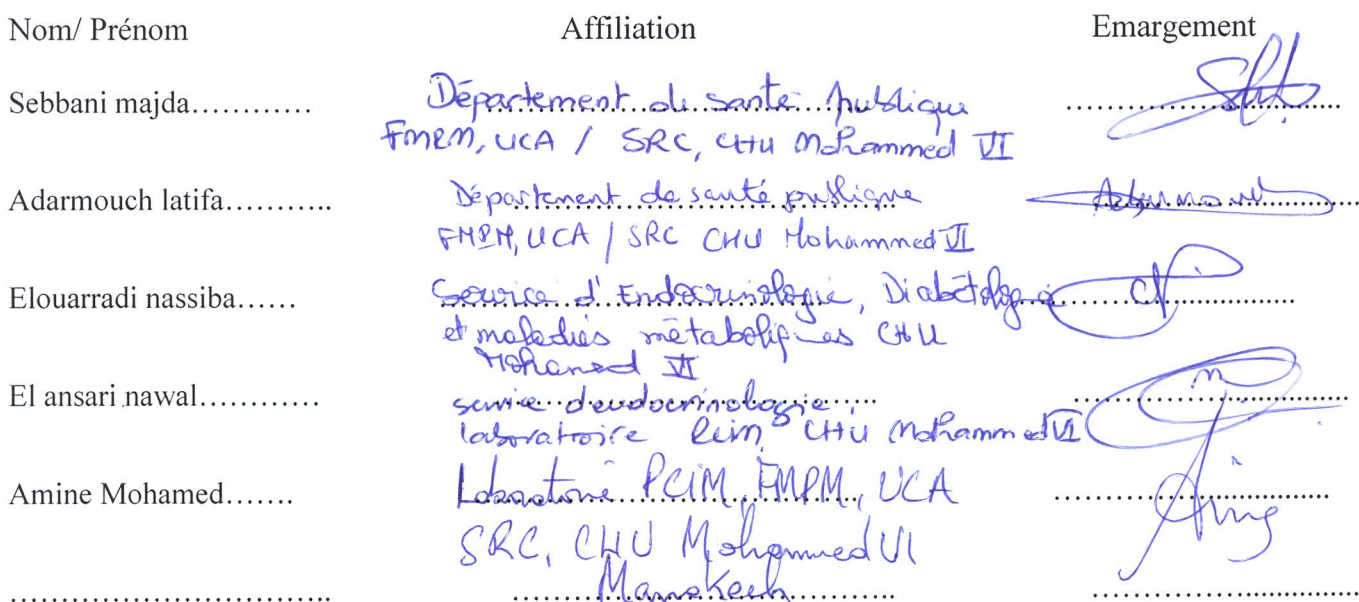 Nom/ Prénom Affiliation Emargement
Sebbani majda………… Département de santé publique …
FMPM, UCA / SRC, CHU Mohammed VI
Adarmouch latifa……….. Département de santé publique Adarmouch
FMPM, UCA / SRC CHU Mohammed VI
Elouarradi nassiba…… Service d'Endocrinologie, Diabétologie
et maladies métaboliques CHU
Mohamed VI
El ansari nawal………… service d'endocrinologie,
laboratoire CHU Mohammed VI
Amine Mohamed……. Laboratoire PCIM, FMPM, UCA
SRC, CHU Mohammed VI
Marrakech